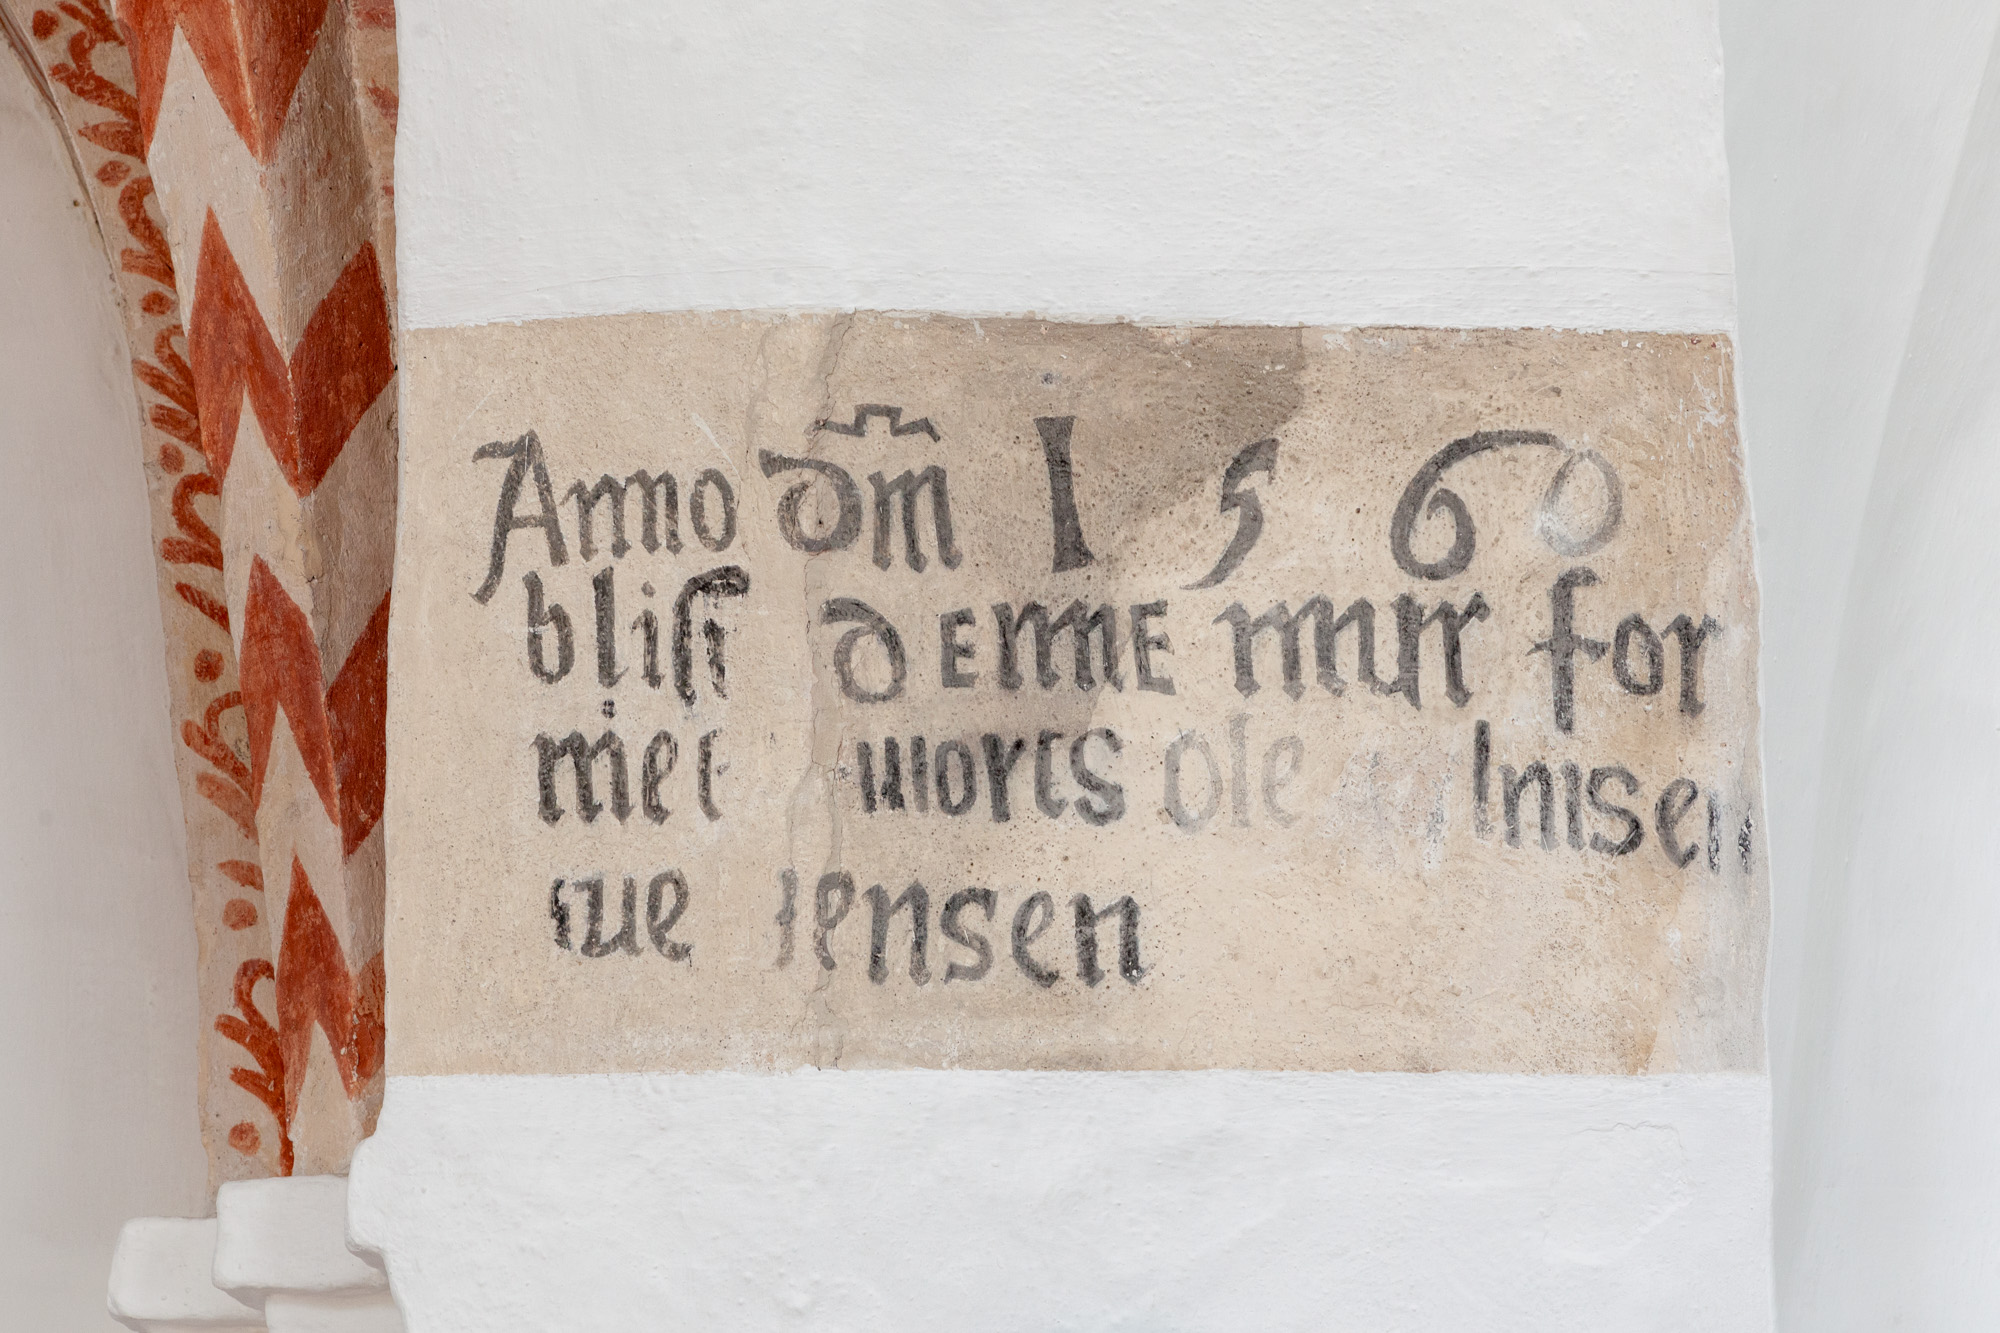 Anno dm 1560
bliff denne mur for
met worts Ole lnisen
sue iensen